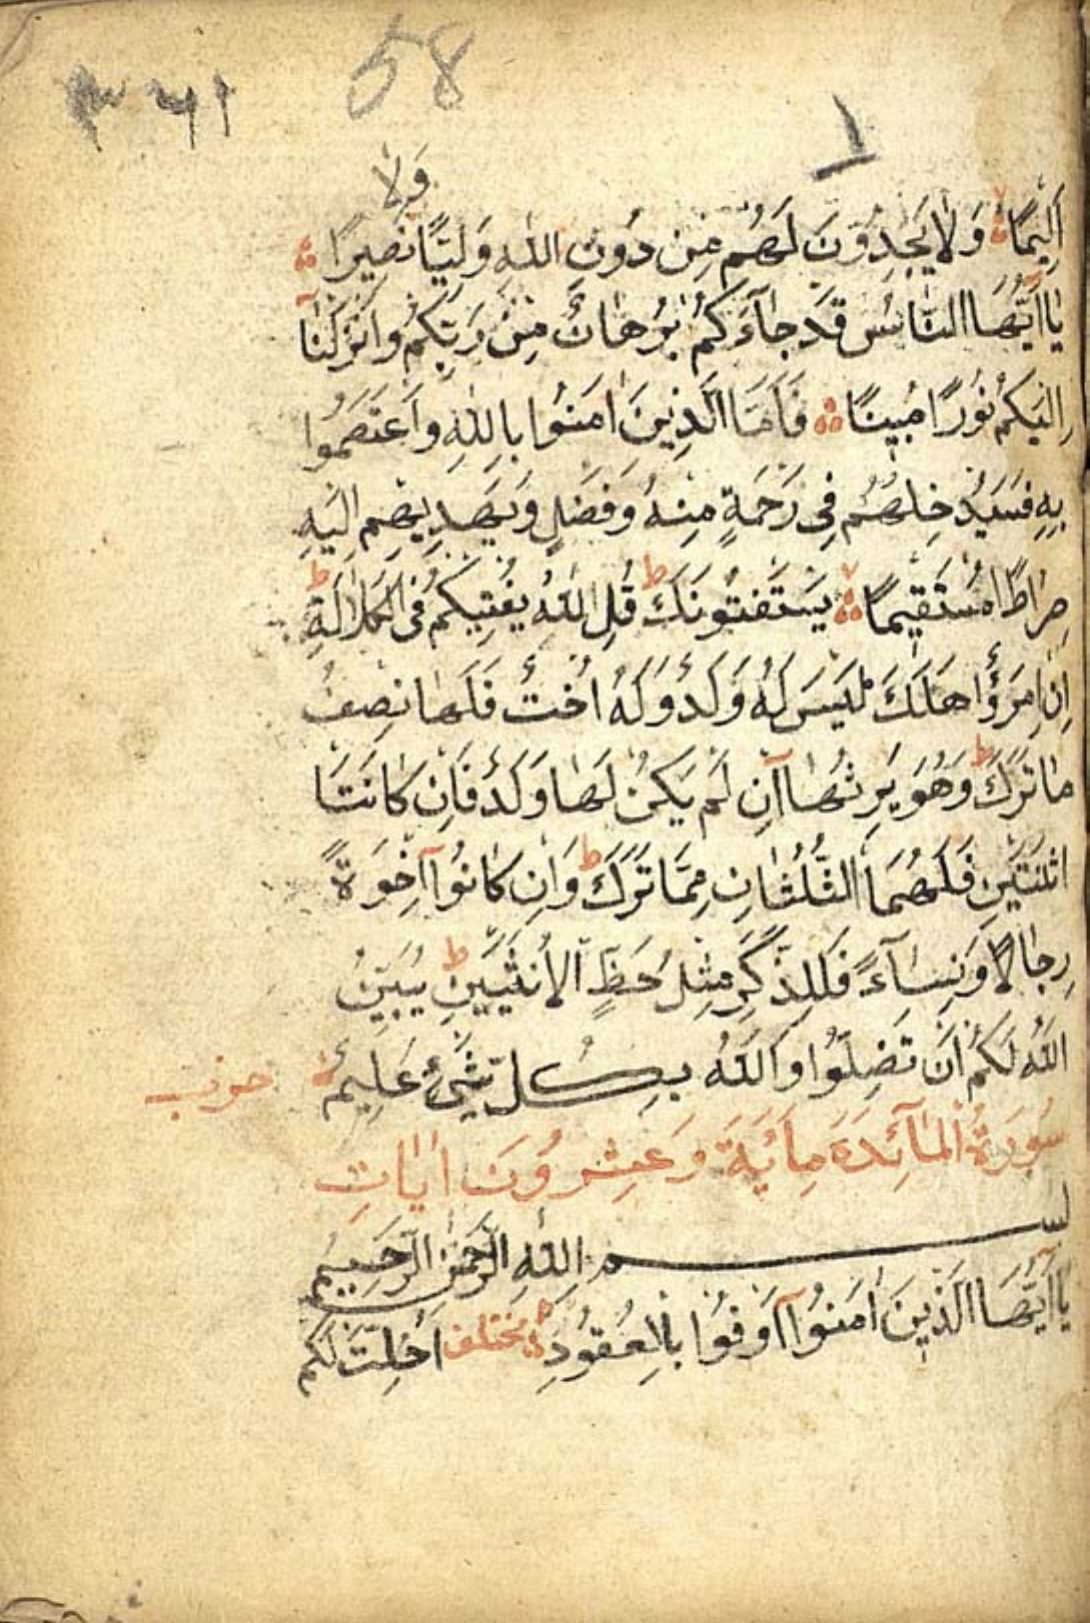 58
١
ولا
اَلِيمًا وَلَا يَجِدُونَ لَهُم مِن دُونِ اللهِ وَلِيًّا نَصِيرًا
يَا اَيُّهَا النَّاسُ قَدْ جَاۤءَكُمْ بُرْهَانٌ مِنْ رَبِّكُمْ وَاَنْزَلْنَا
اِلَيْكُمْ نُورًا مُبِينًا فَاَمَّا الَّذِينَ اٰمَنُوا بِاللهِ وَاعْتَصَمُوا
بِهِ فَسَيُدْخِلُهُمْ فِى رَحْمَةٍ مِنْهُ وَفَضْلٍ وَيَهْدِيهِمْ اِلَيْهِ
صِرَاطًا مُسْتَقِيمًا يَسْتَفْتُونَكَ ط قُلِ اللهُ يُفْتِيكُمْ فِى الْكَلَالَةِ ط
اِنِ امْرُؤٌا هَلَكَ لَيْسَ لَهُ وَلَدٌ وَلَهُ اُخْتٌ فَلَهَا نِصْفُ
مَا تَرَكَ ط وَهُوَ يَرِثُهَا اۤنِ لَمْ يَكُنْ لَهَا وَلَدٌ فَاِنْ كَانَتَا
اثْنَتَيْنِ فَلَهُمَا الثُّلُثَانِ مِمَّا تَرَكَ ط وَاِنْ كَانُوۤا اِخْوَةً
رِجَالًا وَنِسَاۤءً فَلِلذَّكَرِ مِثْلُ حَظِّ الْاُنْثَيَيْنِ ط يُبَيِّنُ
اللهُ لَكُمْ اَنْ تَضِلُّوا وَاللهُ بِكُلِّ شَيْءٍ عَلِيمٌ حزب
سُورَةُ الْمَاۤئِدَةَ مِائَةَ وَعِشْرُونَ اٰيَاتِ
بسم اللهِ الرَّحْمٰنِ الرَّحِيمِ
يَا اَيُّهَا الَّذِينَ اٰمَنُوۤا اَوْفُوا بِالْعُقُودِ مختلف اُحِلَّتْ لَكُمْ